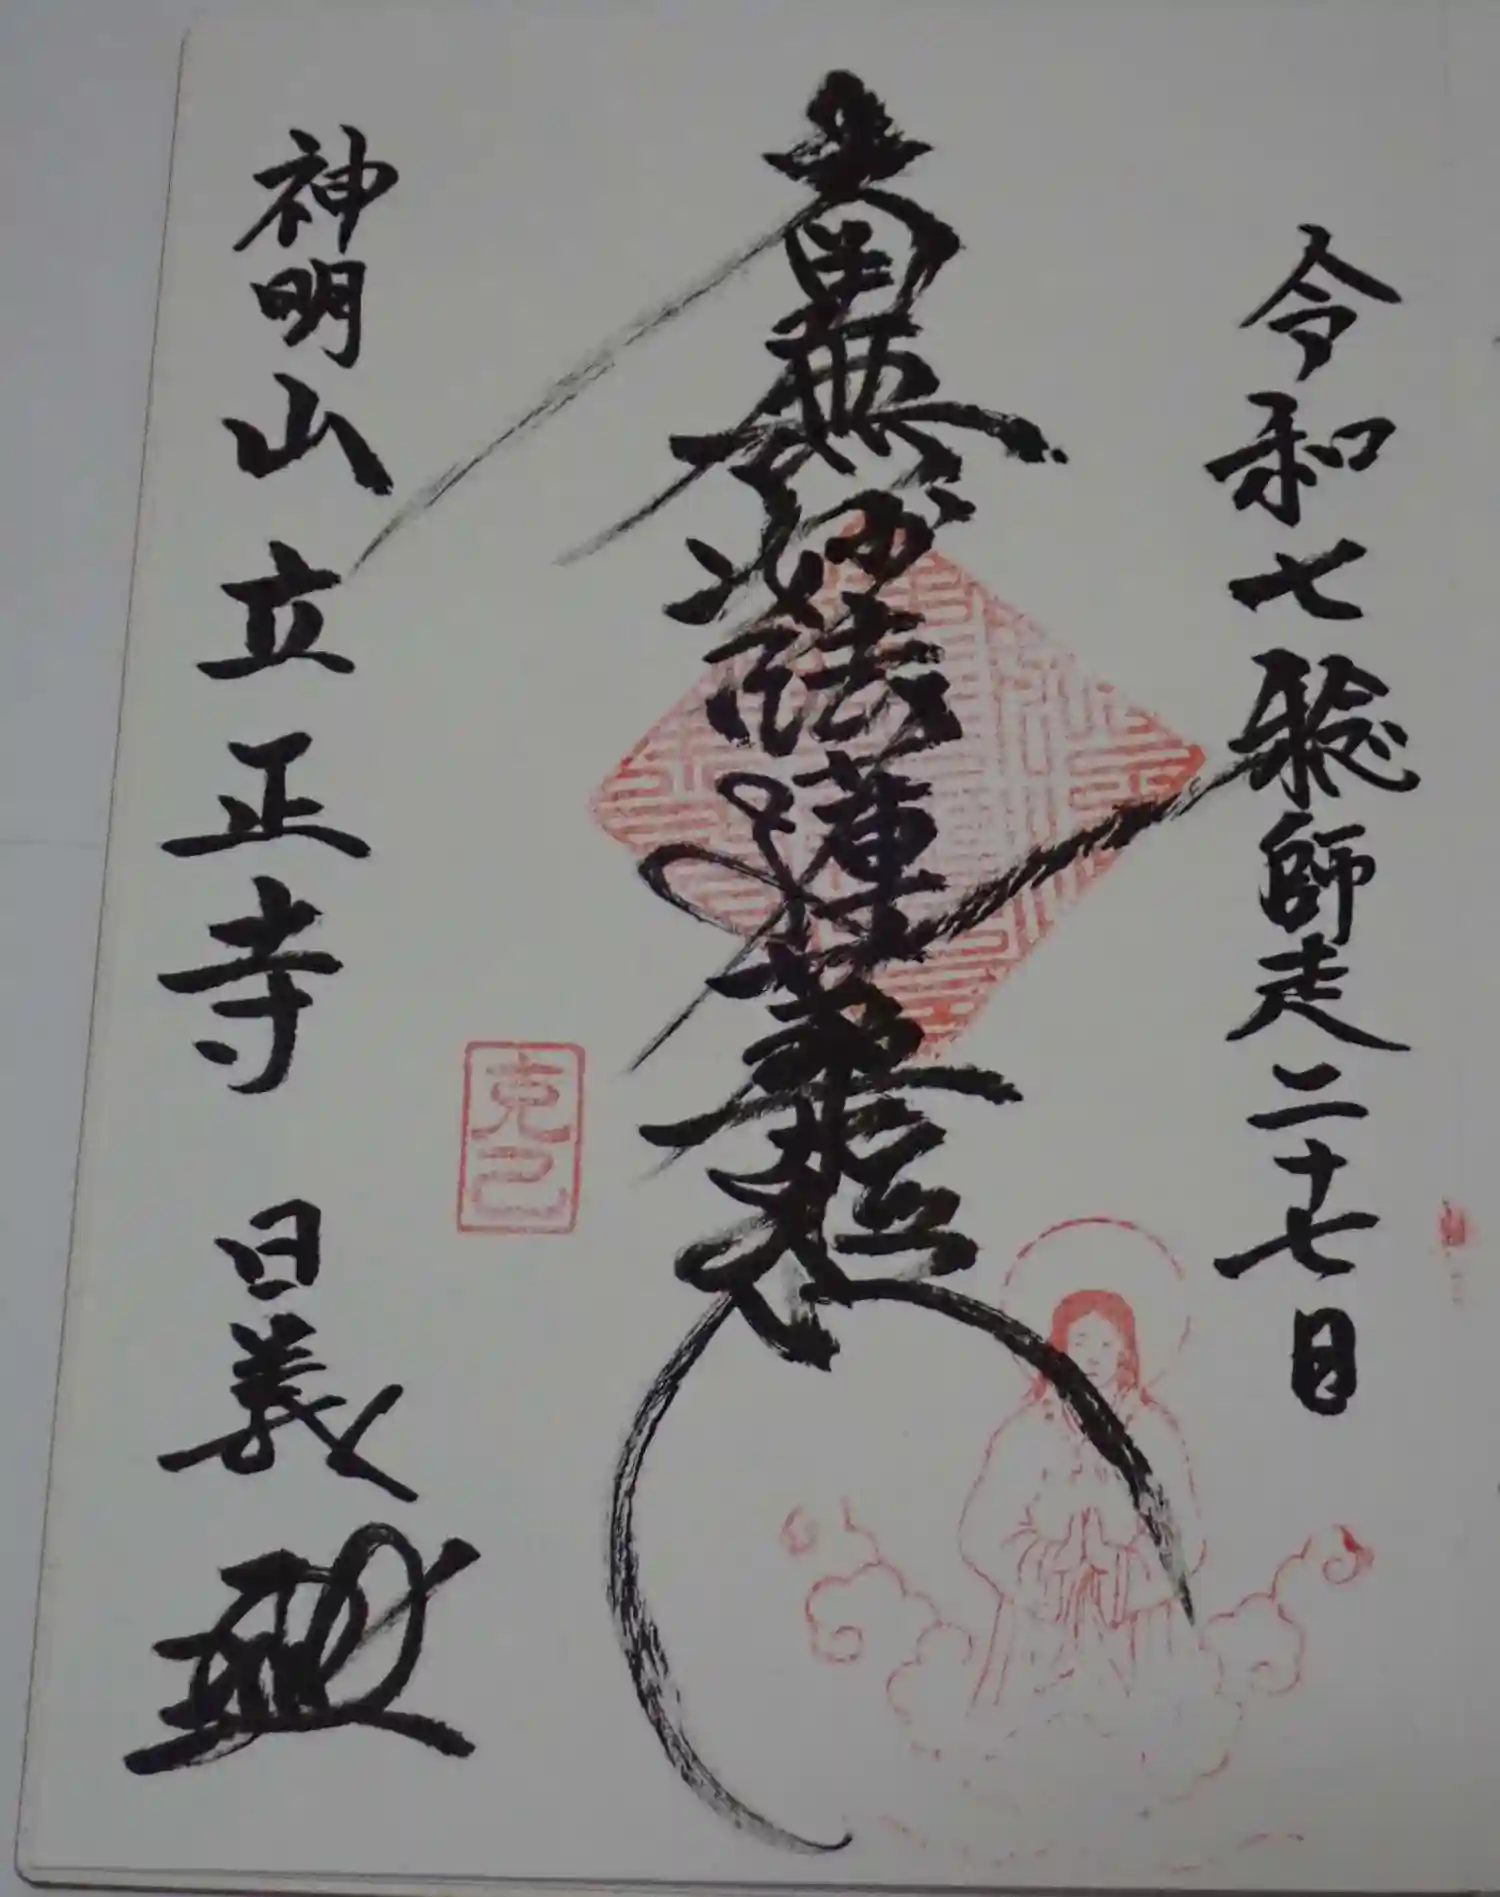 令和七稔師走二十七日
南無妙法蓮華経
克己
神明山立正寺 日義